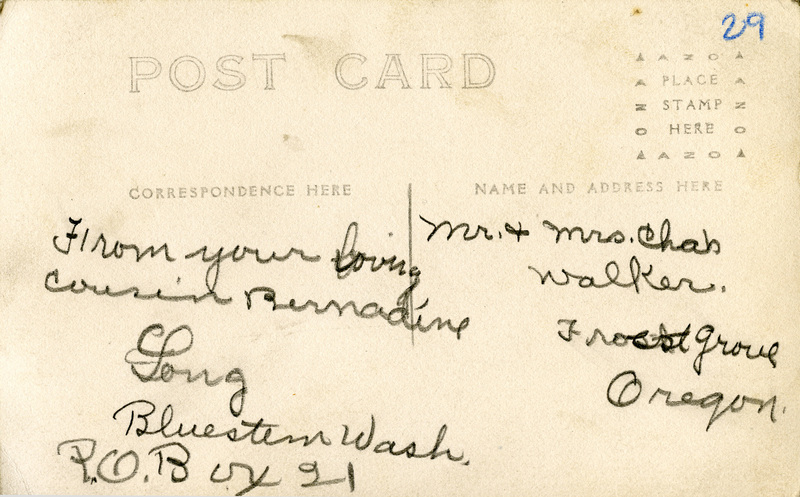 29
POST CARD
AZO
PLACE
STAMP
HERE
AZO
CORRESPONDENCE HERE
NAME AND ADDRESS HERE
From your loving
cousin Bernadine
Long
Bluestem Wash.
P.O. Box 21
Mr. & Mrs. Chas
Walker.
Grove
Oregon.